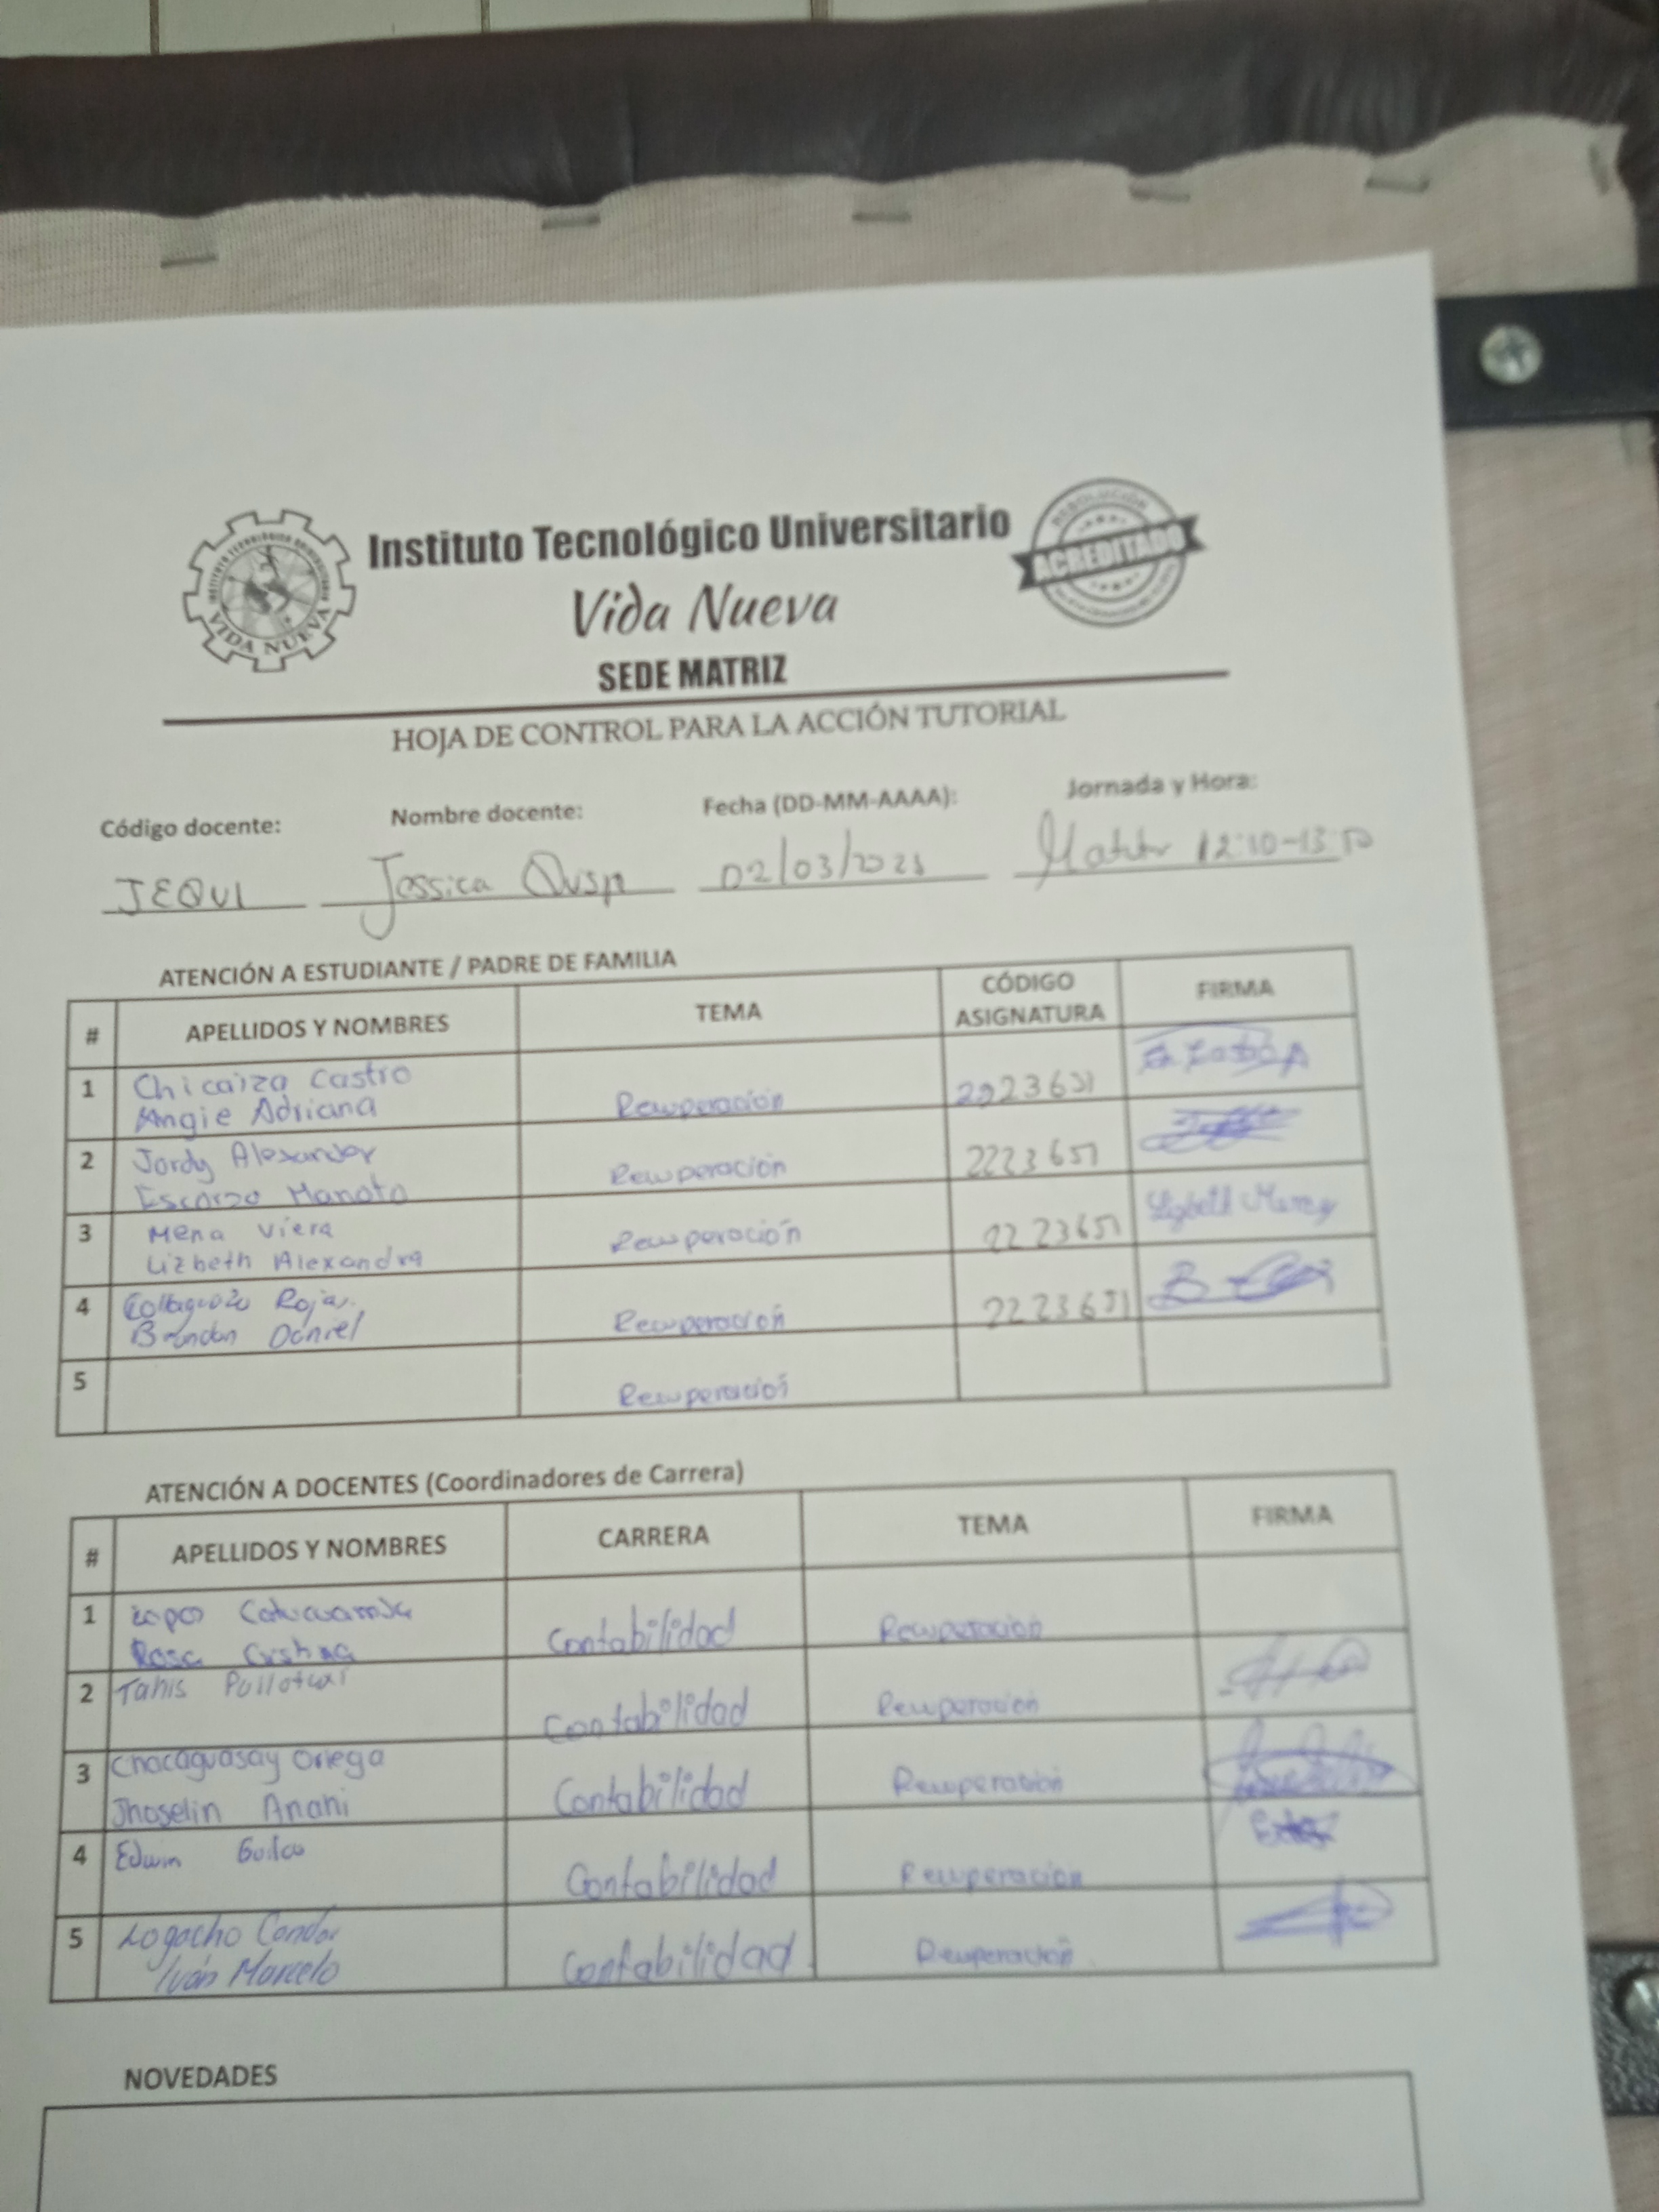 Instituto Tecnológico Universitario
Vida Nueva
SEDE MATRIZ
VIDA NUEVA
ACREDITADO
HOJA DE CONTROL PARA LA ACCIÓN TUTORIAL
Código docente: Nombre docente: Fecha (DD-MM-AAAA): Jornada y Hora:
JEQUI Jessica 02/03/2023 12:10-13:10
ATENCIÓN A ESTUDIANTE / PADRE DE FAMILIA
# APELLIDOS Y NOMBRES TEMA CÓDIGO ASIGNATURA FIRMA
1 Chicaiza Castro
Angie Adriana Recuperación
2 Jordy Alexander
Escorzo Recuperación 2223651
3 Mena Viera
Lizbeth Alexandra Recuperación 2223651
4 Rojas
Brandon Daniel Recuperación 2223651
5 Recuperación
ATENCIÓN A DOCENTES (Coordinadores de Carrera)
# APELLIDOS Y NOMBRES CARRERA TEMA FIRMA
1 Rosa Contabilidad Recuperación
2 Contabilidad Recuperación
3 Chacaguasay Ortega
Jhoselin Anahi Contabilidad Recuperación
4 Edwin Contabilidad Recuperación
5 Logacho Condor
Iván Marcelo Contabilidad Recuperación
NOVEDADES